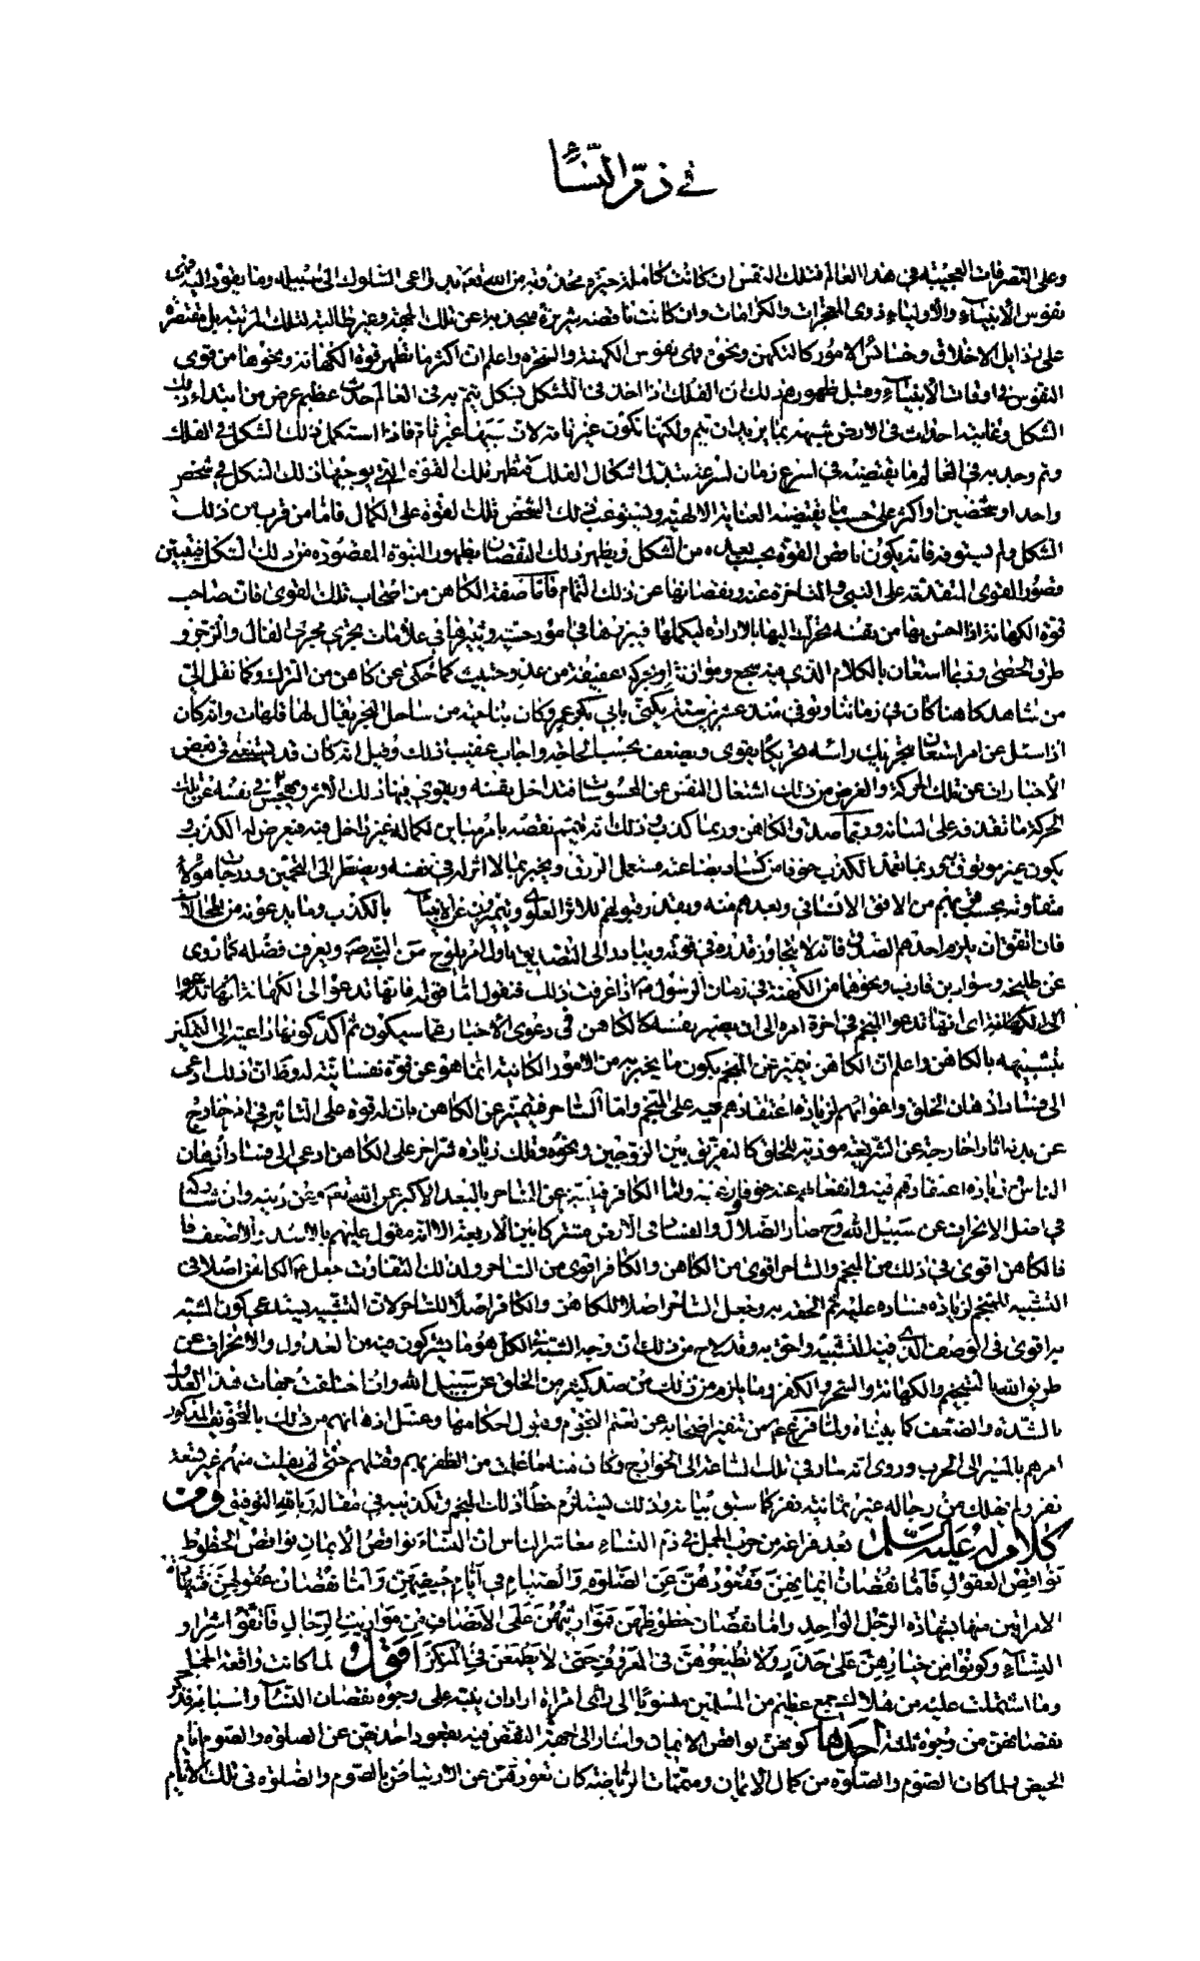 في ذمّ النّساء
وعلى التصرفات العجيبة في هذا العالم فتلك النفس ان كانت كاملة خيرة مجذوبة من الله تعالى بدواعي السلوك الى سبيله وما يقود اليه فهي
نفوس الأنبياء والأولياء ذوى المعجزات والكرامات وان كانت ناقصة شريرة منجذبة عن تلك الجهة وغير طالبة لتلك المرتبة بل مقتصرة
على رذايل الاخلاق وخسائس الامور كالتكهن ونحوه فهى نفوس الكهنة والسحرة واعلم ان اكثر ما تظهر قوة الكهانة ونحوها من قوى
النفوس في اوقات الأنبياء وقبل ظهورهم وذلك ان الفلك اذا اخذ في التشكل بشكل يتم به في العالم حدث عظيم عرض من ابتداء ذلك
الشكل وغايته احداث في الارض شبيهة بما يريد ان يتم ولكنها تكون غير تامة لان سببها غير تام فاذا استكمل ذلك الشكل في الفلك
وتم وجد به في العالم ما يقتضيه في اسرع زمان لسرعة تبدل اشكال الفلك فتظهر تلك القوة التي يوجبها ذلك الشكل في شخص
واحد او شخصين او اكثر على حسب ما يقتضيه العناية الالهية ويستوعب ذلك الشخص تلك القوة على الكمال فاما من قرب من ذلك
الشكل ولم يستوفه فانه يكون ناقص القوة بحسب بعده من الشكل ويظهر ذلك النقصان بظهور النبوة المقصودة من ذلك الشكل فيتبين
قصور القوى المتقدمة على النبي والمتاخرة عنه ونقصانها عن ذلك التمام فاما صفة الكاهن من اصحاب تلك القوى فان صاحب
قوة الكهانة اذا احس بها من نفسه تحرك اليها بالارادة ليكملها فيبرزها في امور حسية ويثيرها في علامات تجرى مجرى الفال والزجر و
طرق الحصى وربما استعان بالكلام الذي فيه سجع وموازنة او بحركة عنيفة من عدو حثيث كما حكى عن كاهن من الترك وكما نقل الى
من شاهد كاهنا كان في زماننا وتوفي منذ عشرين سنة يكنى بابي عمرو كان بناحية من ساحل البحر يقال لها قلهات وانه كان
اذا سئل عن امر استعان بتحريك راسه تحريكا يقوى ويضعف بحسب الحاجة واجاب عقيب ذلك وقيل انه كان قد يستغنى في بعض
الأخبارات عن تلك الحركة والغرض من ذلك اشتغال النفس عن المحسوسات فتداخل نفسه ويقوى فيها ذلك الاثر ويهجس في نفسه عن تلك
الحركة ما تقذفه على لسانه وربما صدق الكاهن وربما كذب وذلك انه يتمم نقصه بامر مباين لكماله غير داخل فيه فيعرض له الكذب و
يكون غير موثوق به وربما تعمد الكذب خوفا من كساد بضاعته فيستعمل الزرق ويخبر بما لا اثر له في نفسه ويضطر الى التخمين ودرجات هؤلاء
متفاوتة بحسب قربهم من الافق الانساني وبعدهم منه وبقدر قبولهم للاثر العلوي ويتميزون عن الأنبياء بالكذب وما يدعونه من المحالات
فان اتفق ان يلزم احدهم الصدق فانه لا يتجاوز قدره في قوته ويبادر الى التصديق باول امر يلوح من النبي ص ويعرف فضله كما روى
عن طليحة وسواد بن قارب ونحوهما من الكهنة في زمان الرسول ص اذا عرفت ذلك فنقول اما قوله فانها تدعو الى الكهانة
اى انها تدعو المنجم في اخرة امره الى ان يصير نفسه كالكاهن في دعوى الأخبار عما سيكون ثم اكد كونها داعية الى التكهن
بتشبيهه بالكاهن واعلم ان الكاهن يتميز عن المنجم بكون ما يخبر به من الامور الكائنة انما هو عن قوة نفسانية له وظ ان ذلك ادعى
الى فساد اذهان الخلق واغوائهم لزيادة اعتقادهم فيه على المنجم واما الساحر فيتميز عن الكاهن بان له قوة على التاثير في امر خارج
عن بدنه اثارا خارجة عن الشريعة موذية للخلق كالتفريق بين الزوجين ونحوه وتلك زيادة شر اخر على الكاهن ادعى الى فساد اذهان
الناس وزيادة اعتقادهم فيه وانفعالهم عنه خوفا ورغبة واما الكافر فيتميز عن الساحر بالبعد الاكبر عن الله تعالى وعن دينه وان شاركه
في اصل الانحراف عن سبيل الله وح صار الضلال والفساد في الارض مشتركا بين الأربعة الا انه مقول عليهم بالاشد والاضعف
فالكاهن اقوى في ذلك من المنجم والساحر اقوى من الكاهن والكافر اقوى من الساحر ولذلك التفاوت جعل ع الكاهن اصلا في
التشبيه للمنجم لزيادة فساده عليه ثم الحقه به وجعل الساحر اصلا للكاهن والكافر اصلا للساحر لان التشبيه يستدعى كون المشبه
به اقوى في الوصف الذي فيه التشبيه واحق به وقد لاح من ذلك ان وجه الشبه في الكل هو ما يشتركون فيه من العدول والانحراف عن
طريق الله بالتنجيم والكهانة والسحر والكفر وما يلزم من ذلك من صد كثير من الخلق عن سبيل الله وان اختلفت جهات هذا العدول
بالشدة والضعف كما بيناه ولما فرغ ع من تنفير اصحابه عن تعلم النجوم وقبول احكامها وغسل اذهانهم من ذلك بالتخويف المذكور
امرهم بالمسير الى الحرب وروى انه سار في تلك الساعة الى الخوارج وكان منه ما علمت من الظفر بهم وقتلهم حتى لم يفلت منهم غير تسعة
نفر ولم يهلك من رجاله غير ثمانية نفر كما سبق بيانه وذلك يستلزم خطأ ذلك المنجم وتكذيبه في مقاله وبالله التوفيق ومن
كلام له عليه السلام بعد فراغه من حرب الجمل في ذم النساء معاشر الناس ان النساء نواقص الأيمان نواقص الحظوظ
نواقص العقول فاما نقصان ايمانهن فقعودهن عن الصلوة والصيام في ايام حيضهن واما نقصان عقولهن فشهادة
الامراتين منها بشهادة الرجل الواحد واما نقصان حظوظهن فمواريثهن على الانصاف من مواريث الرجال فاتقوا اشرار
النساء وكونوا من خيارهن على حذر ولا تطيعوهن في المعروف حتى لا يطمعن في المنكر اقول لما كانت واقعة الجمل
وما اشتملت عليه من هلاك جمع عظيم من المسلمين منسوبا الى راى امراة اراد ان ينبه على وجوه نقصان النساء واسبابه فذكر
نقصانهن من وجوه ثلثة احدها كونهن نواقص الايمان واشار الى جهة النقص فيه بقعود احديهن عن الصلوة والصوم ايام
الحيض ولما كان الصوم والصلوة من كمال الأيمان ومتممات الرياضة كان قعودهن عن الارتياض بالصوم والصلوة في تلك الأيام